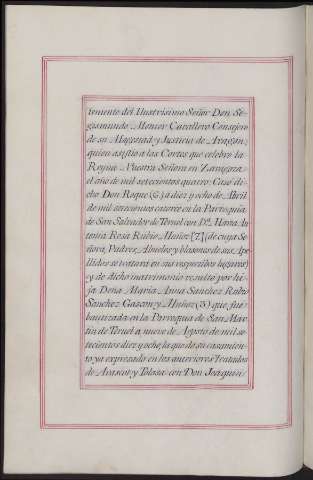 teniente del Illustrisimo Señor Don Se-
gismundo Monter Cavallero Consejero
de su Magestad y Justicia de Aragon;
quien asistio a las Cortes que celebro la
Reyna Nuestra Señora en Zaragoza
el año de mil setecientos quatro: Casó di-
cho Don Roque (6) a diez y ocho de Abril
de mil setecientos catorce en la Parroquia
de San Salvador de Teruel con Dª. Maria An-
tonia Rosa Rubio Muñoz (7) (de cuya Se-
ñora, Padres, Abuelos y blasones de sus Ape-
llidos se tratará en sus respectibos lugares)
y de dicho matrimonio resultó por hi-
ja Doña Maria Anna Sanchez Rubio
Sanchez Gascon y Muñoz (3) que fue
bautizada en la Parroquia de San Mar-
tin de Teruel a nueve de Agosto de mil se-
tecientos diez y ocho, la que de su casamien-
to ya expresado en los anteriores Tratados
de Avascot y Tolosa con Don Joaquin